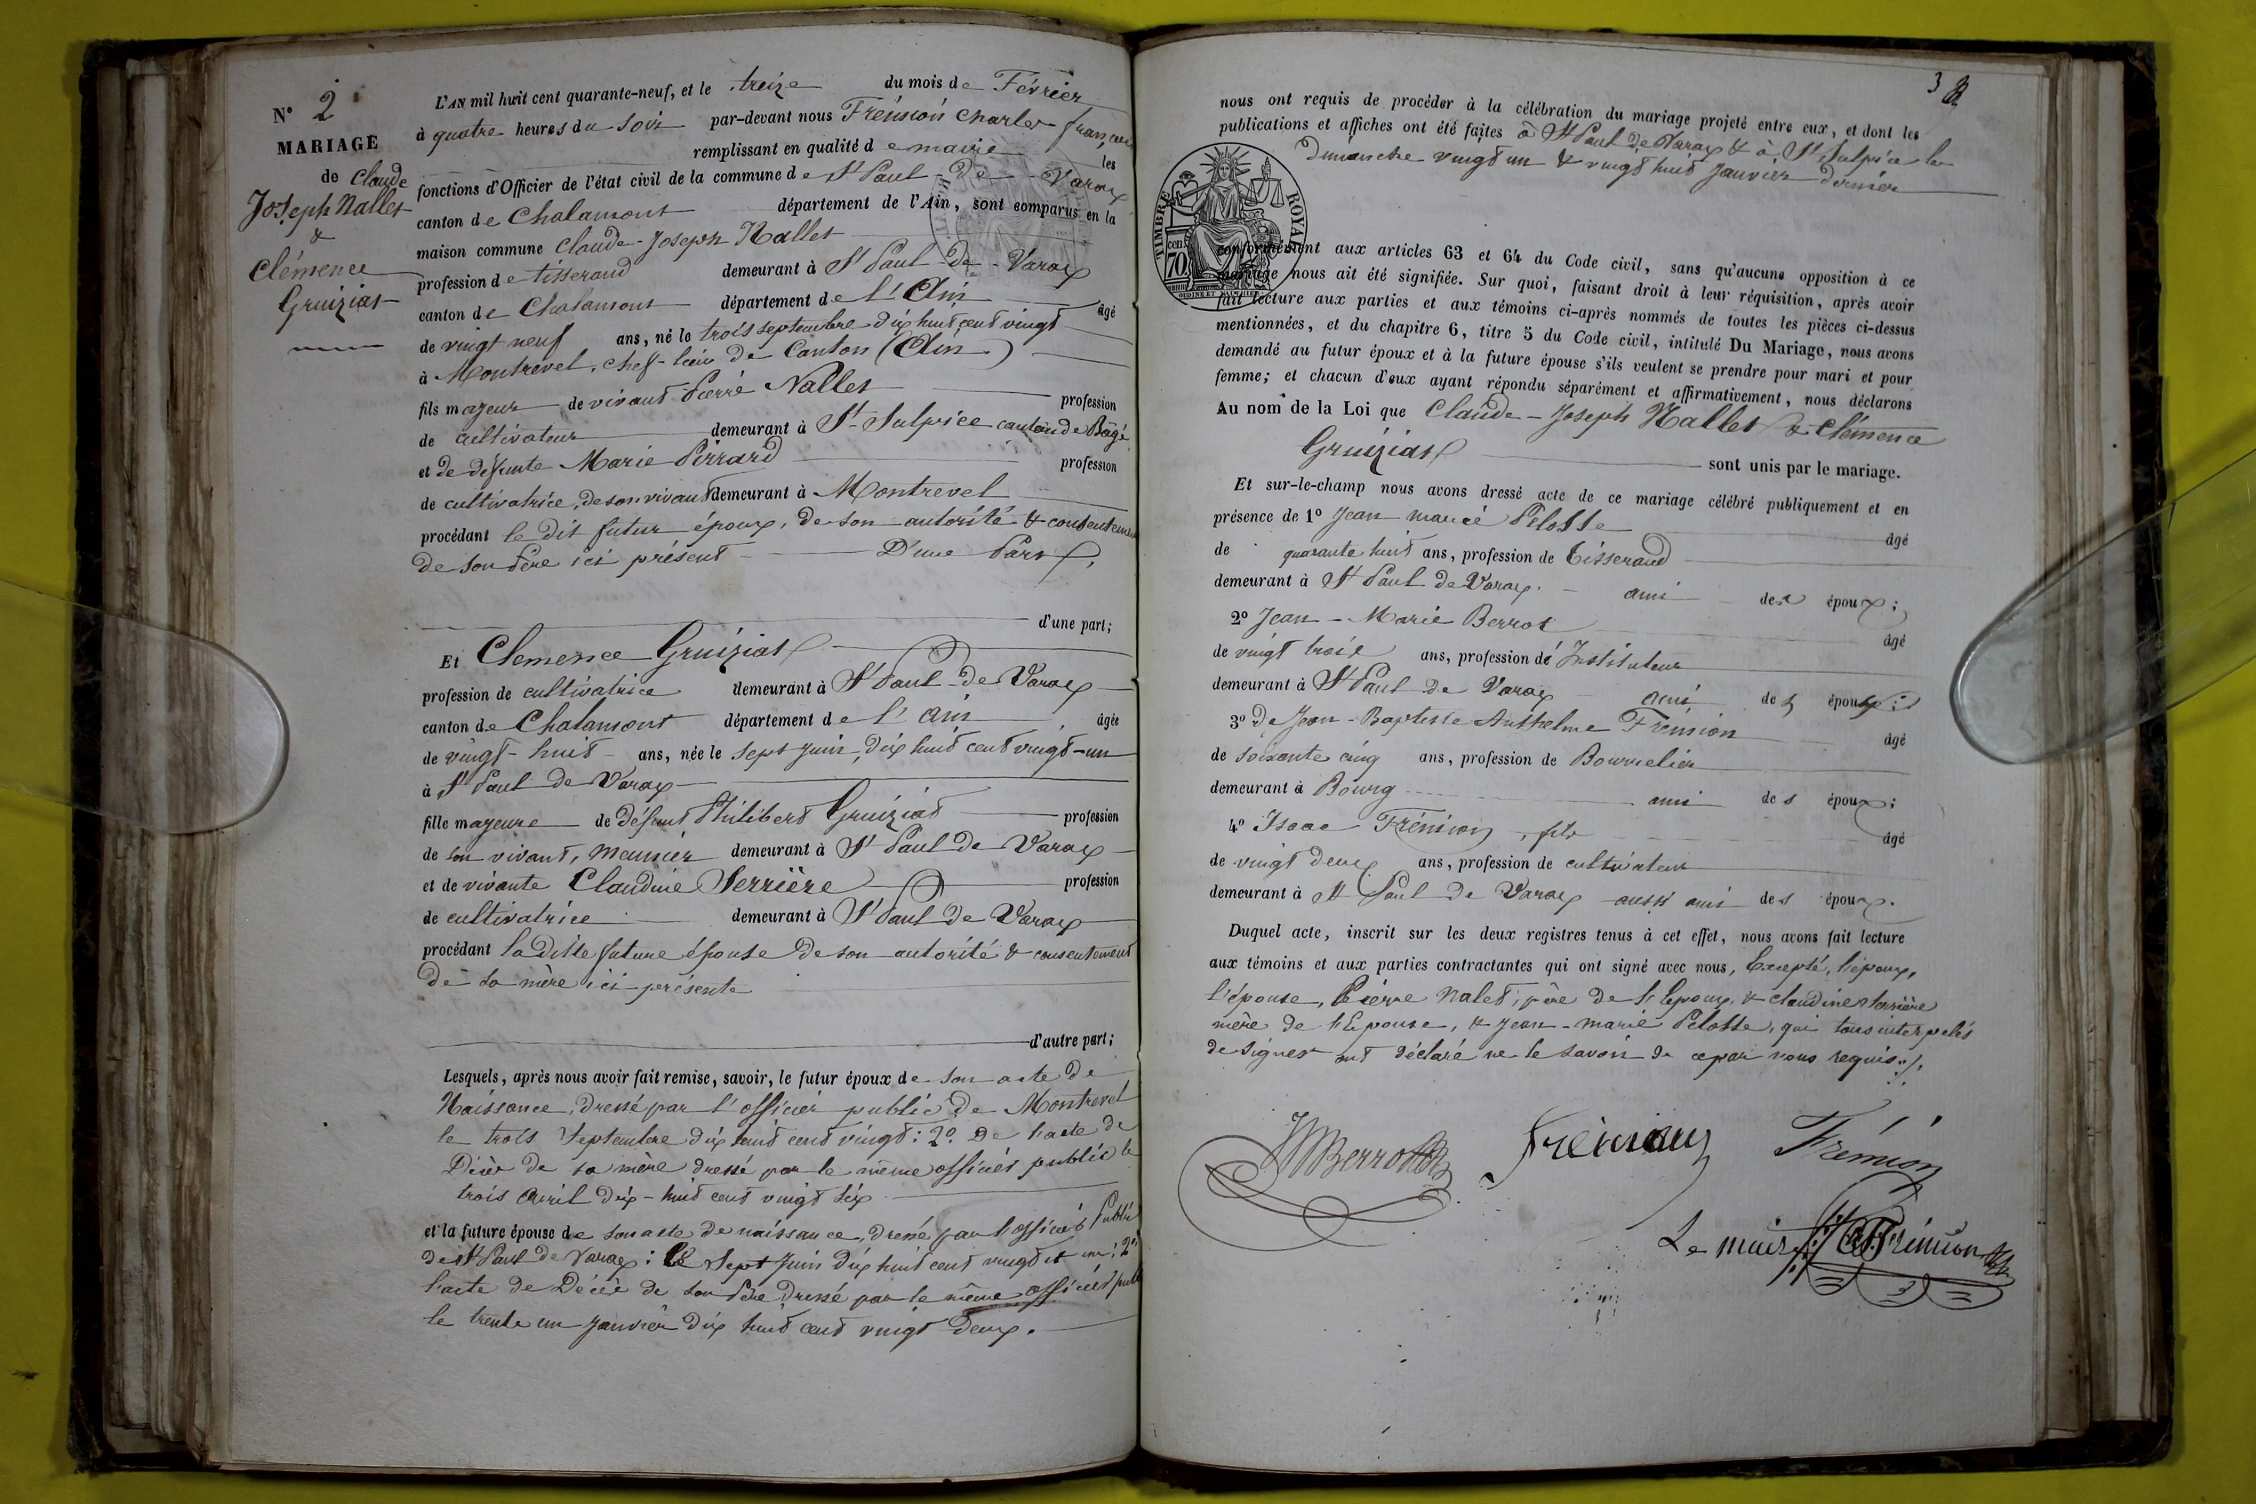 N° 2
MARIAGE
de Claude
Joseph Nallet
&
Clémence
Gruizias
L'AN mil huit cent quarante-neuf, et le treize du mois de Février
à quatre heures du soir par-devant nous Frémion Charles françois
remplissant en qualité de maire les
fonctions d'Officier de l'état civil de la commune de St Paul-de-Varax
canton de Chalamont département de l'Ain, sont comparus en la
maison commune Claude-Joseph Nallet
profession de tisserand demeurant à St Paul-de-Varax
canton de Chalamont département de l'Ain âgé
de vingt neuf ans, né le trois septembre dix huit cent vingt
à Montrevel, chef-lieu de Canton (Ain)
fils majeur de vivant Pierre Nallet profession
de cultivateur demeurant à St Sulpice canton de Bagé
et de défunte Marie Perrard profession
de cultivatrice, de son vivant demeurant à Montrevel
procédant le dit futur époux, de son autorité & consentement
de son Père ici présent D'une Part,
d'une part;
Et Clemence Gruizias
profession de cultivatrice demeurant à St Paul-de Varax
canton de Chalamont département de l'ain âgée
de vingt-huit ans, née le sept Juin, dix huit cent vingt-un
à St Paul de Varax
fille majeure de défunt Philibert Gruizias profession
de son vivant, Meunier demeurant à St Paul de Varax
et de vivante Claudine Serrière profession
de cultivatrice demeurant à St Paul de Varax
procédant la dite future épouse de son autorité & consentement
de sa mère ici présente
d'autre part;
Lesquels, après nous avoir fait remise, savoir, le futur époux de son acte de
Naissance, dressé par l'officier public de Montrevel
le trois Septembre dix huit cent vingt: 2° De l'acte de
Décès de sa mère dressé par le même officier public le
trois avril dix-huit cent vingt six
et la future épouse de son acte de naissance, dressé par l'officier Public
de St Paul de Varax: le sept Juin dix huit cent vingt et un: 2°
l'acte de Décès de son Père dressé par le même officier publ
le trente un Janvier dix huit cent vingt Deux.
3
nous ont requis de procéder à la célébration du mariage projeté entre eux, et dont les
publications et affiches ont été faites à St Paul de Varax & à St Sulpice le
Dimanche vingt un & vingt huit Janvier dernier
TIMBRE ROYAL
cen. 70
conformément aux articles 63 et 64 du Code civil, sans qu'aucune opposition à ce
mariage nous ait été signifiée. Sur quoi, faisant droit à leur réquisition, après avoir
fait lecture aux parties et aux témoins ci-après nommés de toutes les pièces ci-dessus
mentionnées, et du chapitre 6, titre 5 du Code civil, intitulé Du Mariage, nous avons
demandé au futur époux et à la future épouse s'ils veulent se prendre pour mari et pour
femme; et chacun d'eux ayant répondu séparément et affirmativement, nous déclarons
Au nom de la Loi que Claude-Joseph Nallet & Clémence
Gruizias sont unis par le mariage.
Et sur-le-champ nous avons dressé acte de ce mariage célébré publiquement et en
présence de 1° Jean marie Pelosse âgé
de quarante huit ans, profession de Tisserand
demeurant à St Paul de Varax. ami des époux;
2° Jean-Marie Berrot âgé
de vingt trois ans, profession de Instituteur
demeurant à St Paul de Varax ami des époux;
3° de Jean-Baptiste Anthelme Frémion âgé
de soixante cinq ans, profession de Bourrelier
demeurant à Bourg ami des époux;
4° Isaac Frémion, fils âgé
de vingt deux ans, profession de cultivateur
demeurant à St Paul de Varax aussi ami des époux.
Duquel acte, inscrit sur les deux registres tenus à cet effet, nous avons fait lecture
aux témoins et aux parties contractantes qui ont signé avec nous, Excepté, l'époux,
l'épouse, Pierre Nalet, père de l'Epoux, & claudine Serrière
mère de l'Epouse, & Jean-marie Pelosse, qui tous interpelés
de signer ont déclaré ne le savoir de ce par nous requis./.
JMBerrot
Frémion
Frémion
Le maire Frémion